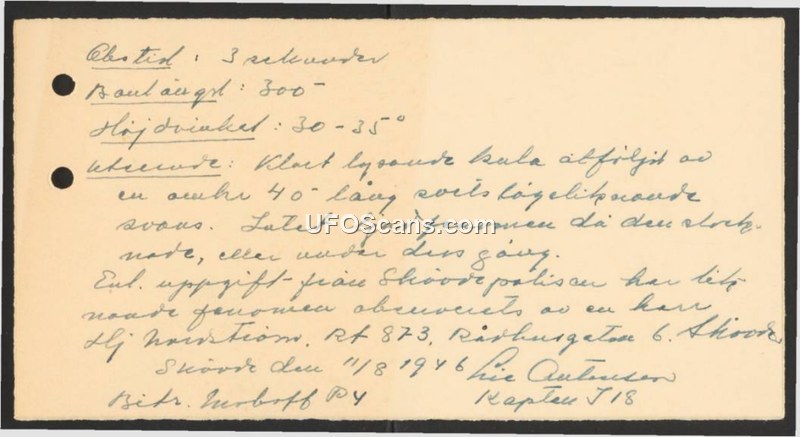 Obstid : 3 sekunder
Banlängd : 300
Höjdvinkel : 30 - 35°
Utseende : Klart lysande kula åtföljd av
en omkr 40 lång svetslågeliknande
svans. Intet ljudfenomen då den slock-
nade, eller under dess gång.
Enl. uppgift från Skövdepolisen har lik-
nande fenomen observerats av en herr
Hj Nordström. Rt 873, Rådhusgatan 6. Skövde
Skövde den 11/8 1946
Bitr. P4 Kapten I 18
UFOScans.com